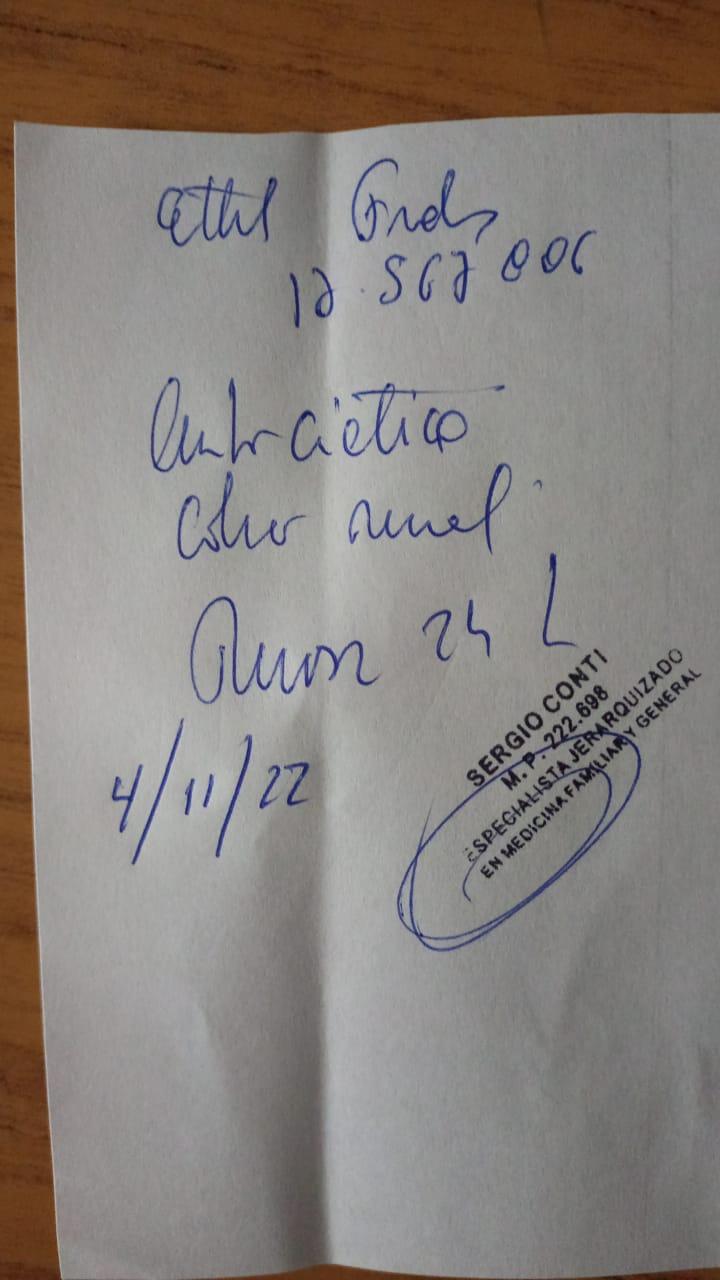 Ethl
17.567.006
ciático
renal
24 h
4/11/22
SERGIO CONTI
M. P. 222.698
ESPECIALISTA JERARQUIZADO
EN MEDICINA FAMILIAR Y GENERAL